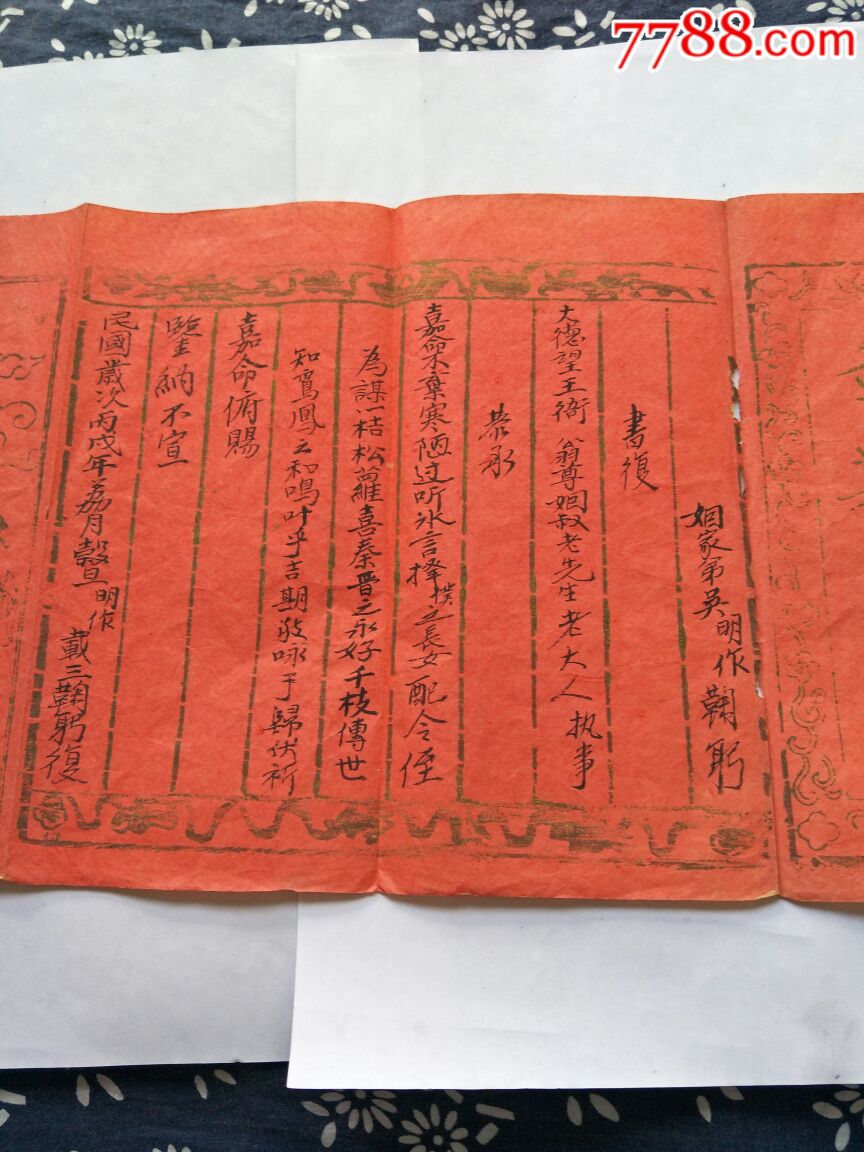 7788.com
姻家弟吳明作鞠躬
書復
大德望王衙翁尊姻叔老先生老大人执事
恭承
嘉命不棄寒陋过听冰言擇撲之長女配令侄
為謀一枯松蘿喜秦晋之永好千枝傳世
知鸞鳳之和鳴叶乎吉期敬咏于歸伏祈
嘉命俯賜
鑒納不宣
民國歲次丙戌年荔月穀旦明作
載三鞠躬復